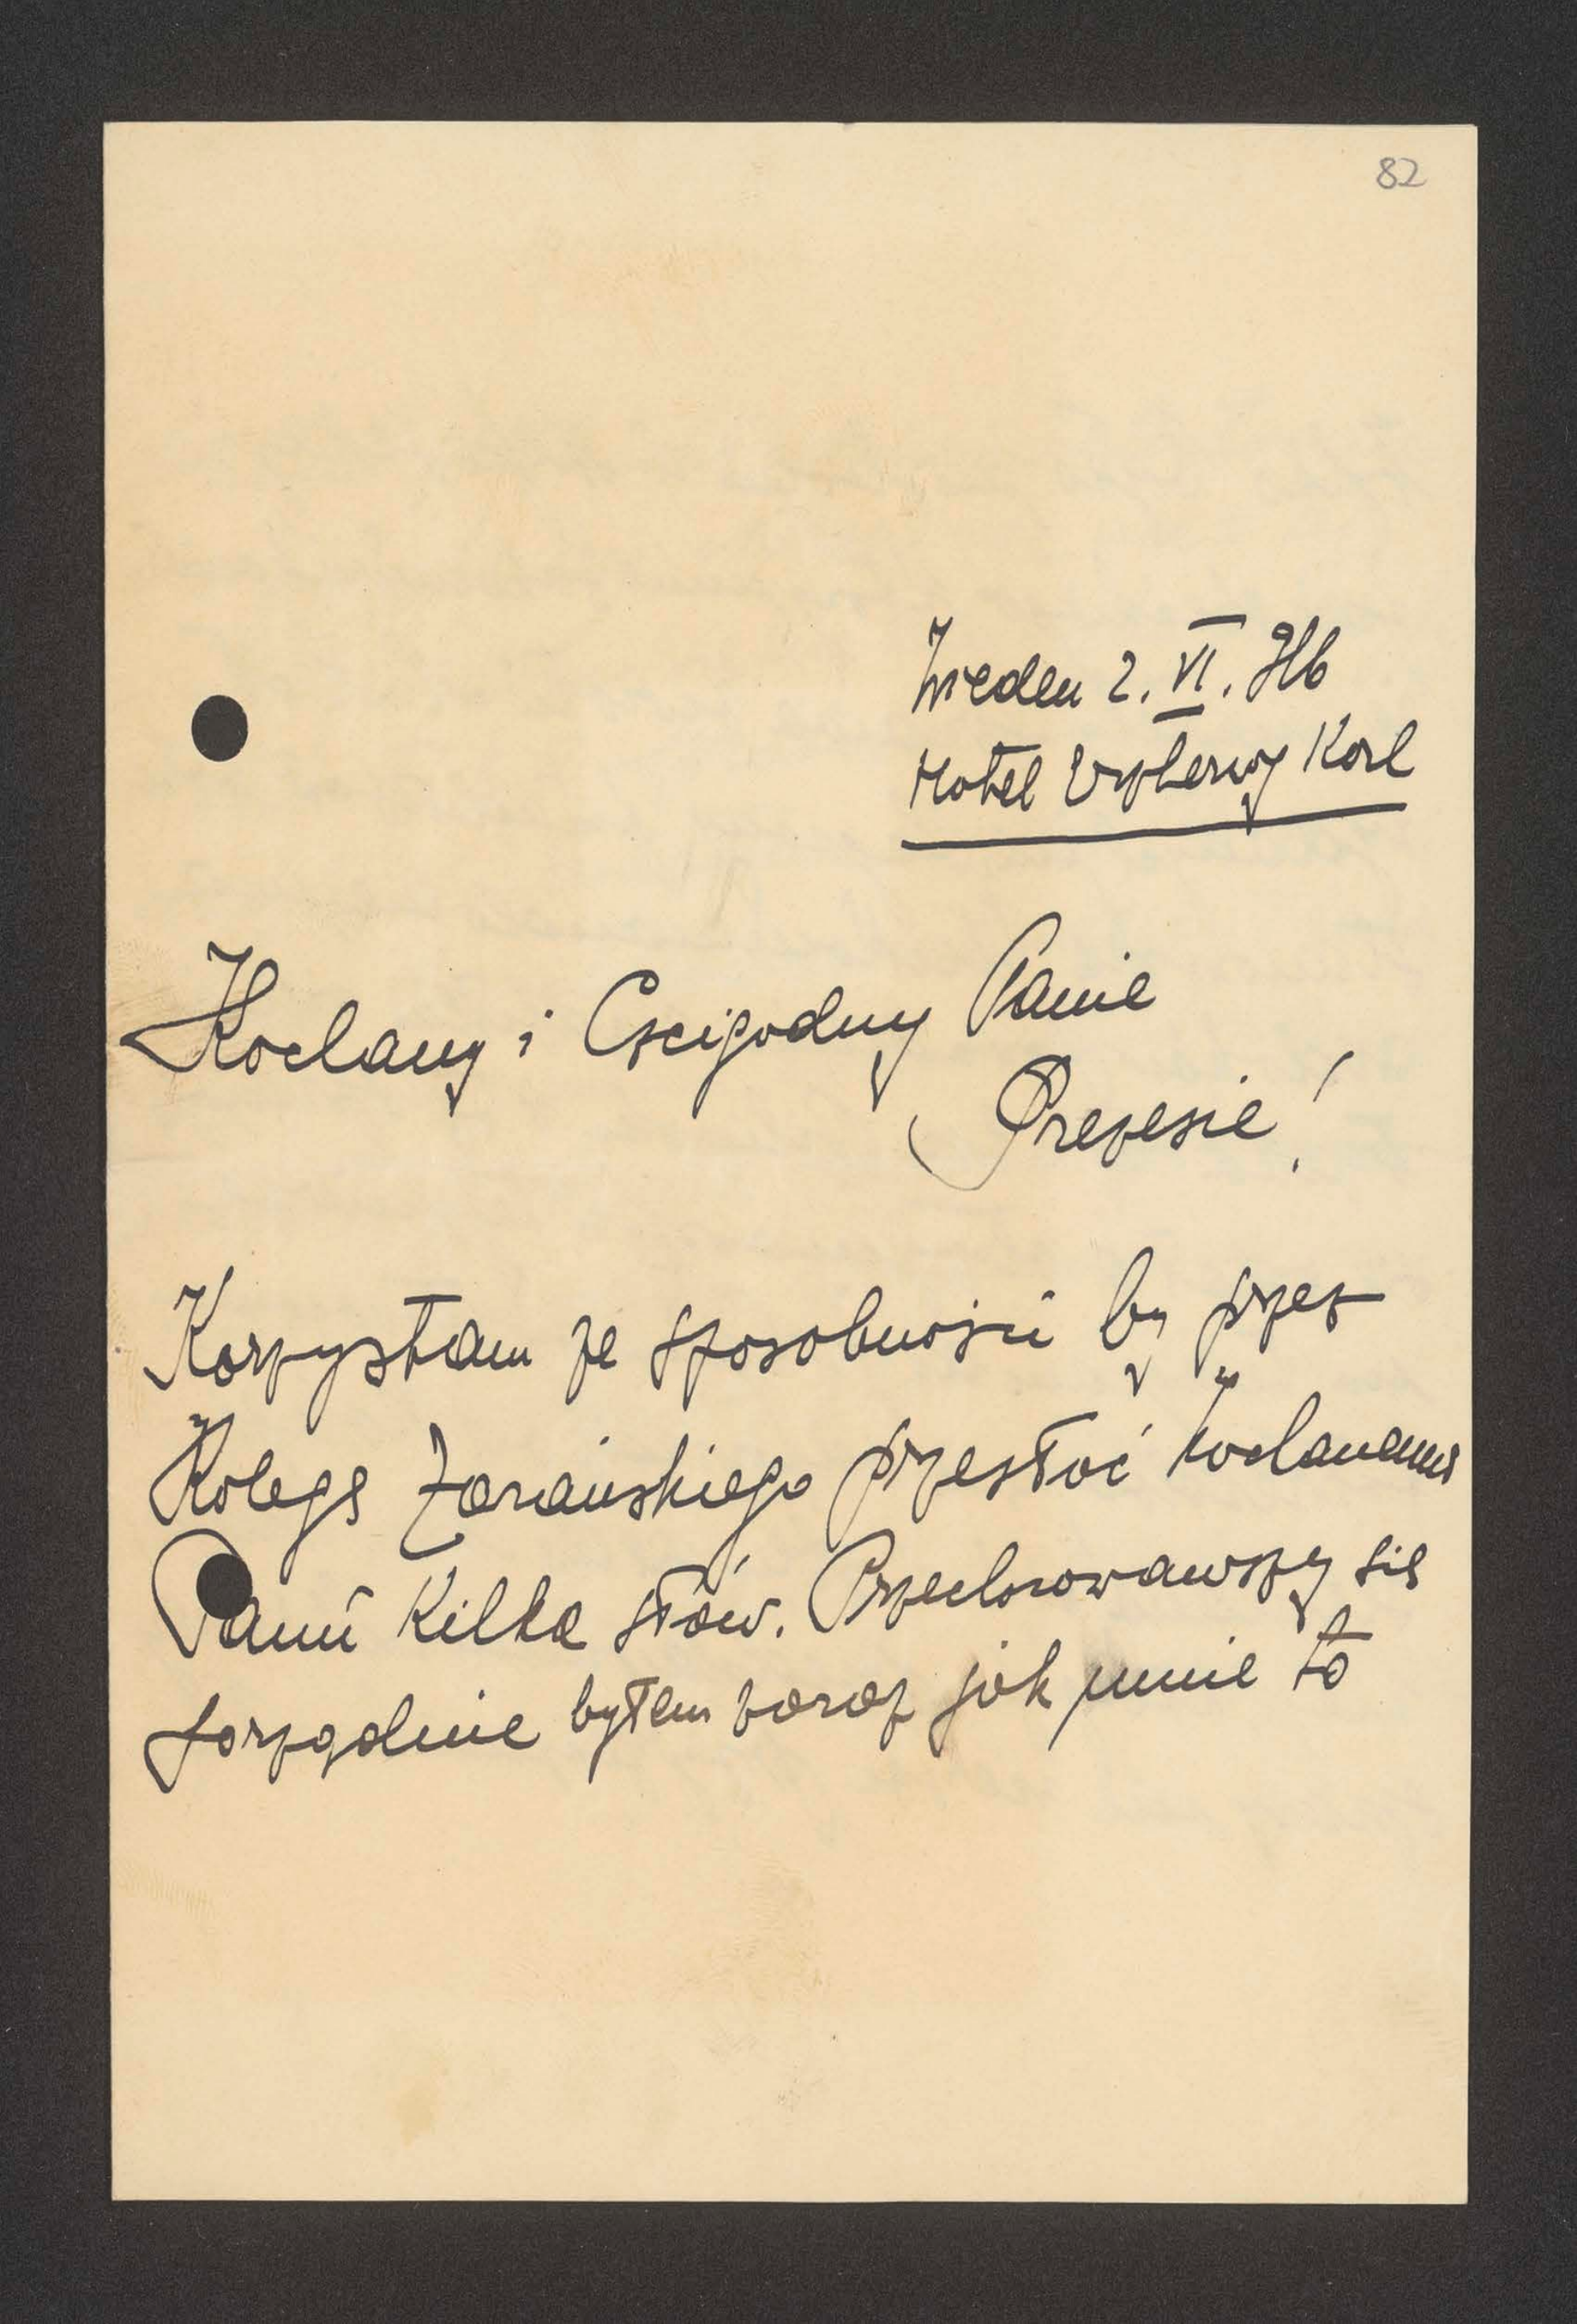 82
Wieden 2. VI. 916
Hotel Erzherzog Karl
Kochany i Czcigodny Panie
Prezesie!
Korzystam ze sposobności by przez
Kolegę Zarańskiego przesłać Kochanemu
Panu kilka słów. Przechorowawszy się
porządnie byłem zaraz jak mnie to